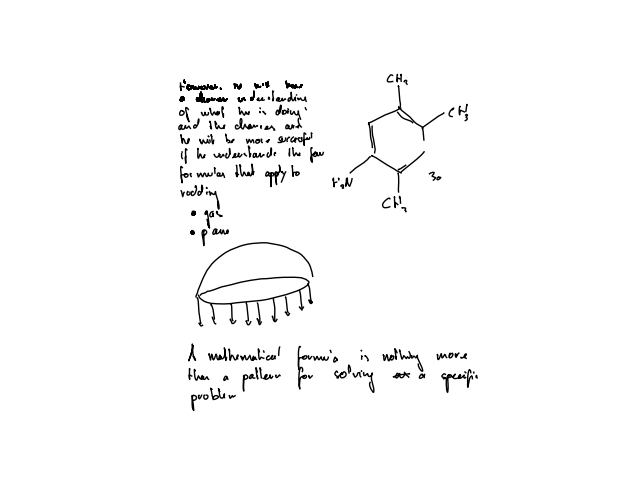 However, he will have
a clearer understanding
of what he is doing
and the chances are
he will be more successful
if he understands the few
formulas that apply to
rodding
• gas
• piano
CH3
CH3
H2N
CH3
30
A mathematical formula is nothing more
than a pattern for solving a specific
problem